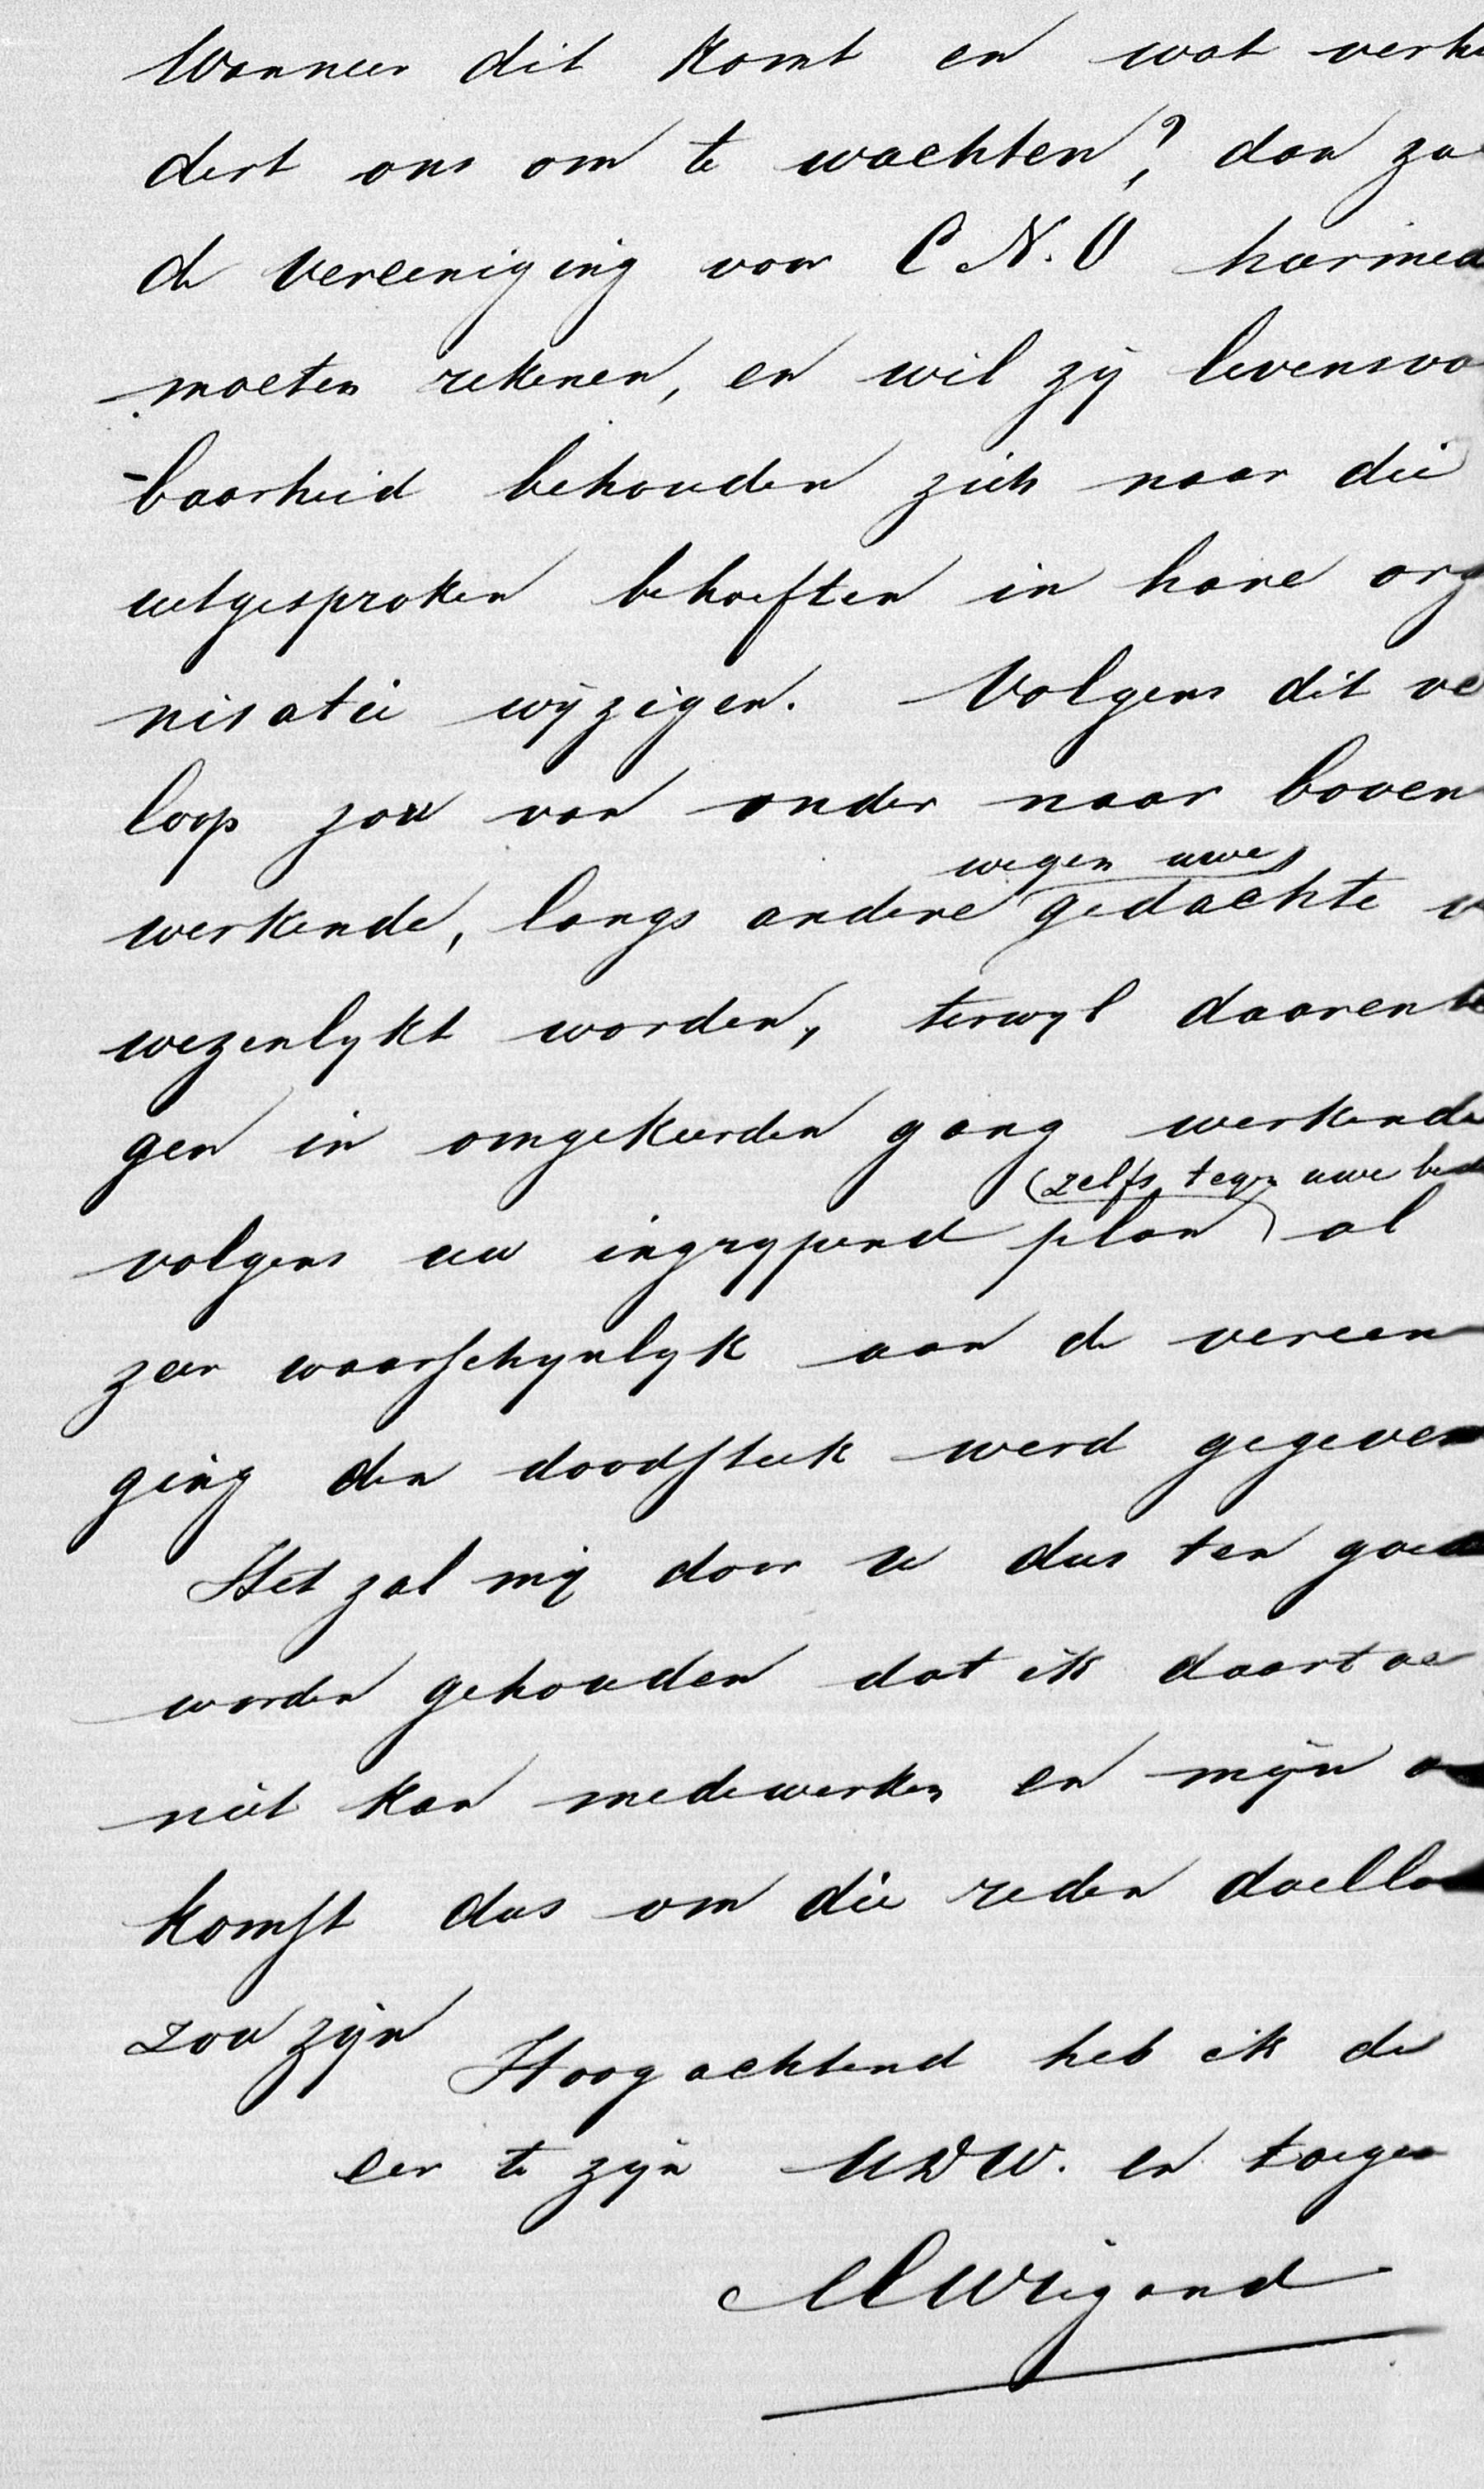 Wanneer dit komt en wat verhi
dert ons om te wachten, ? dan za
de Vereeniging voor C. N. O hiermed
moeten rekenen, en wil zij levensva
-baarheid behouden zich naar die
uitgesproken behoeften in hare org
nisatie wijzigen. Volgens dit ve
loop zou van onder naar boven
wegen uwe
werkende, langs andere gedachte v
wezenlykt worden, terwyl daarente
gen in omgekeerden gang werkende
(zelfs tegen uwe bed
volgens uw ingrypend plan) al
zeer waarschynlyk aan de vereen
ging den doodsteek werd gegeven
Het zal mij door U dus ten goed
worden gehouden dat ik daartoe
niet kan medewerken en mijn o
komst dus om die reden doello
zou zijn
Hoogachtend heb ik de
eer te zijn UDW. en toegen
Wigand